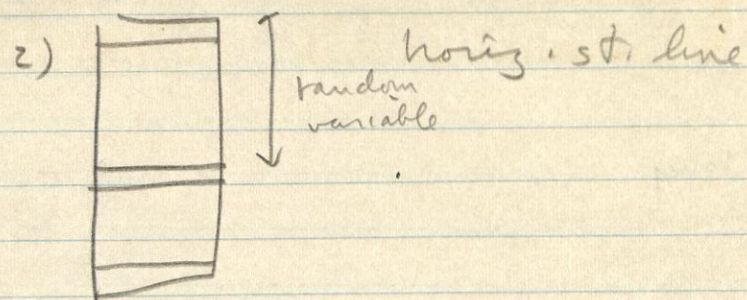 2) horiz. st. line
random
variable